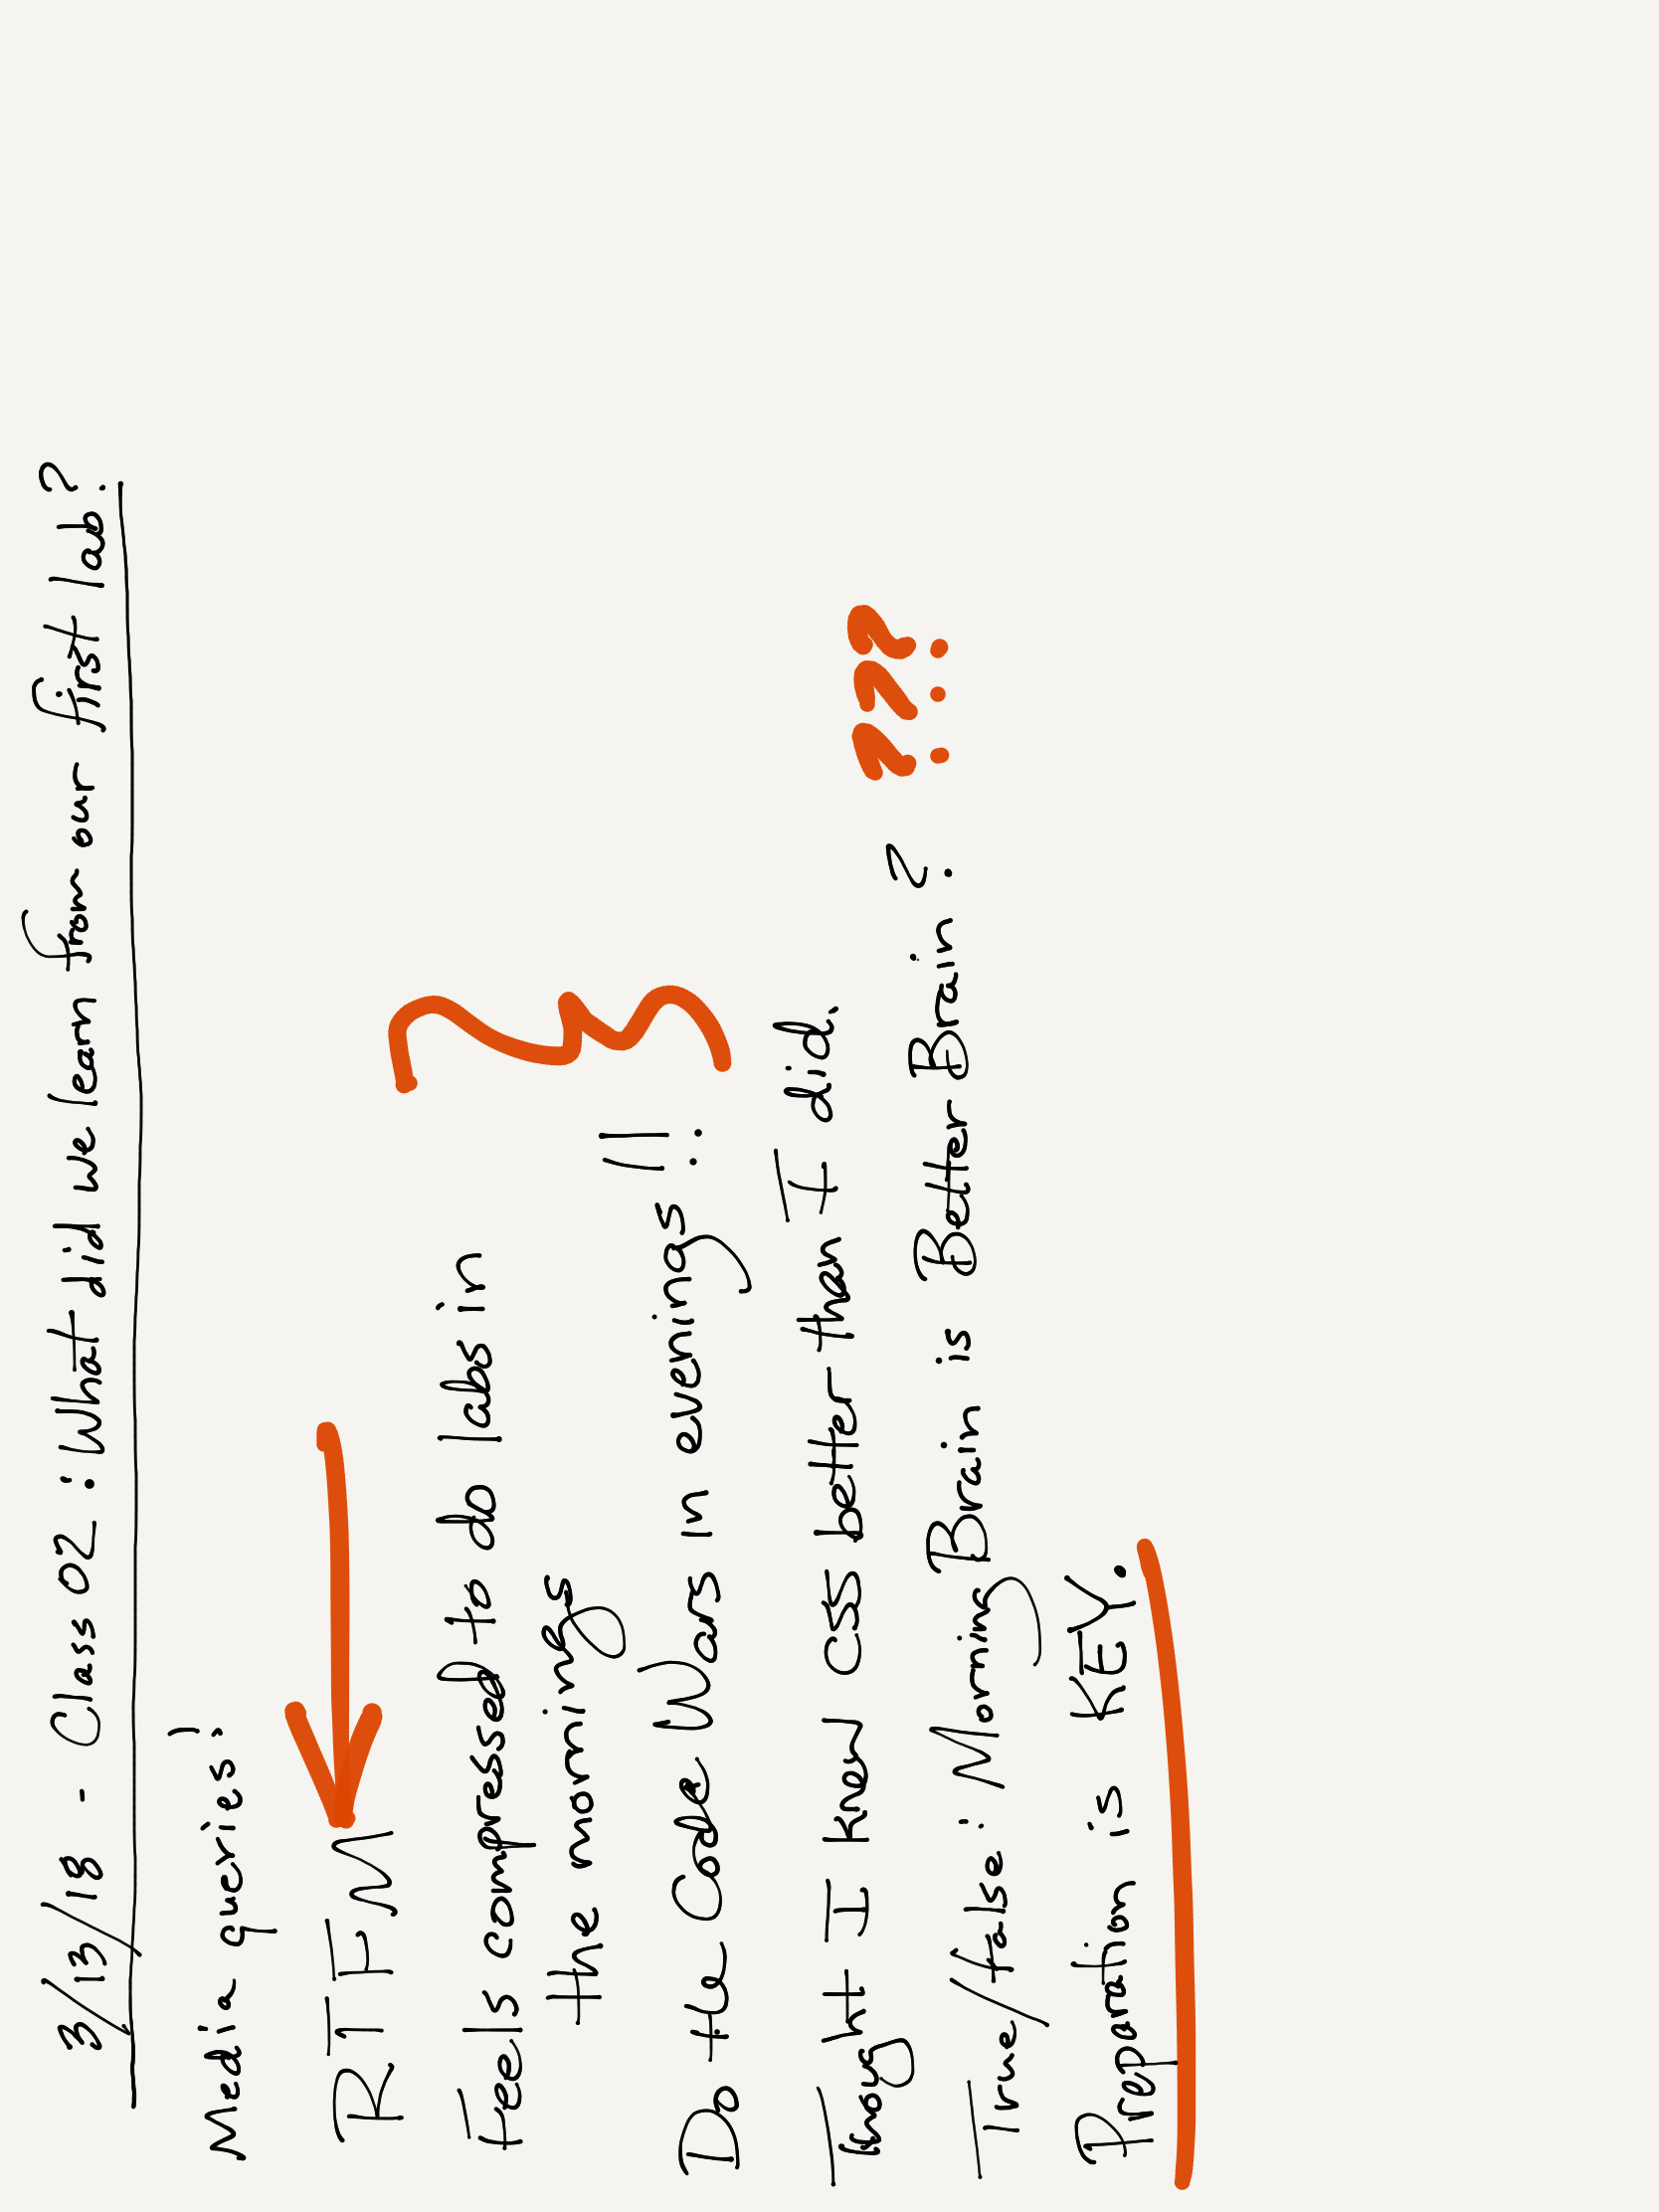 3/13/18 - Class 02: What did we learn from our first lab?
Media queries!
RTFM
Feels compressed to do labs in
the mornings
Do the Code Wars in evenings!!
Thought I knew CSS better than I did.
True/false: Morning Brain is Better Brain? ???
Preparation is KEY.